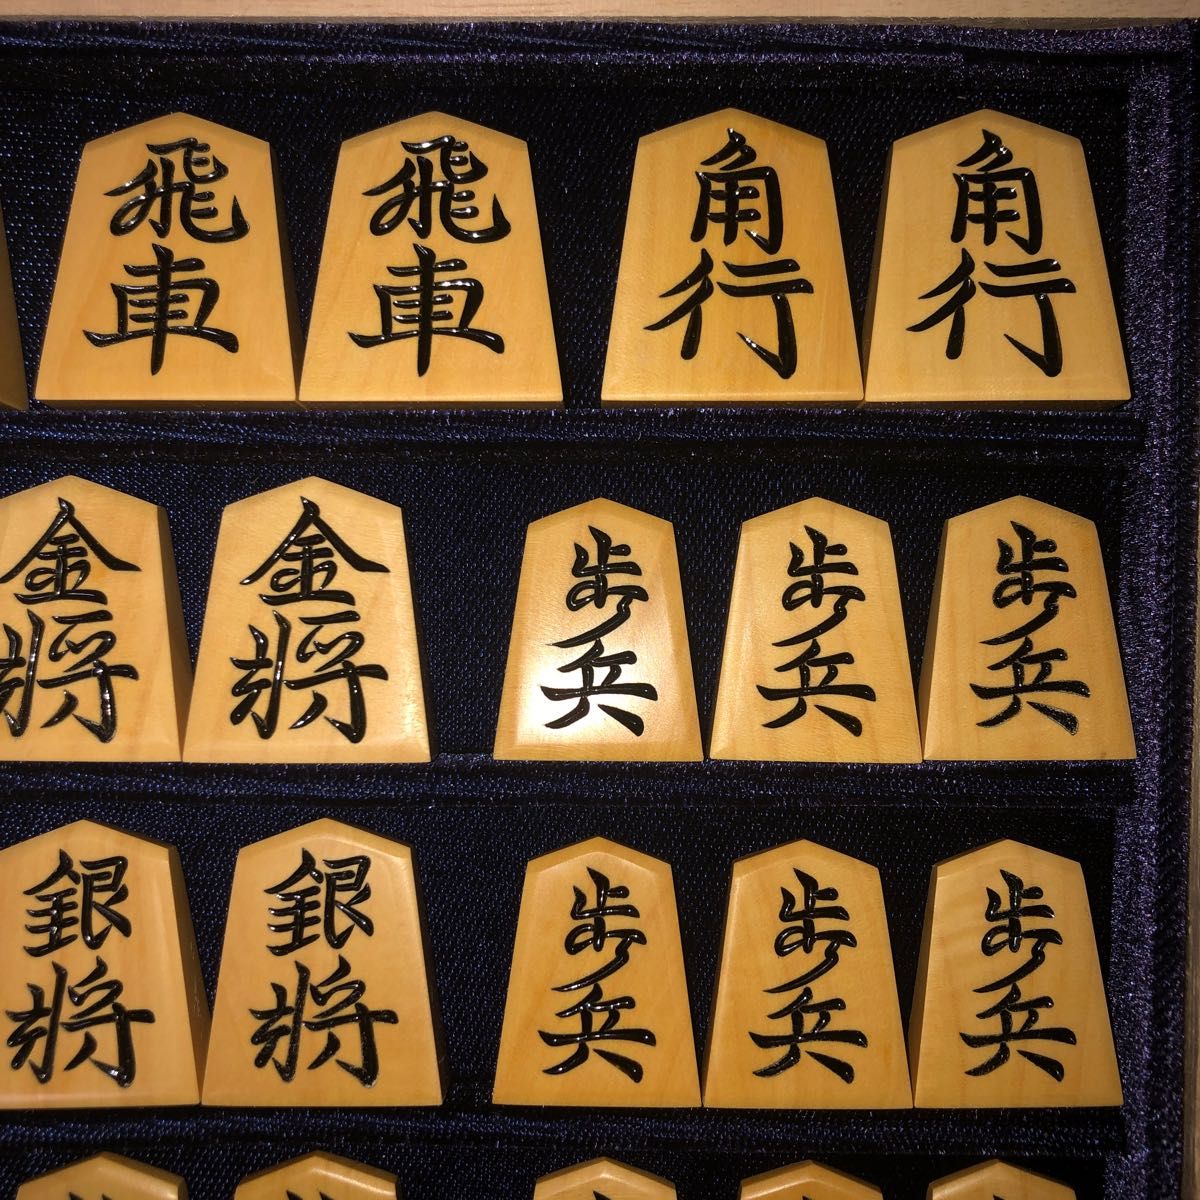 飛車 飛車 角行 角行
金将 金将 歩兵 歩兵 歩兵
銀将 銀将 歩兵 歩兵 歩兵